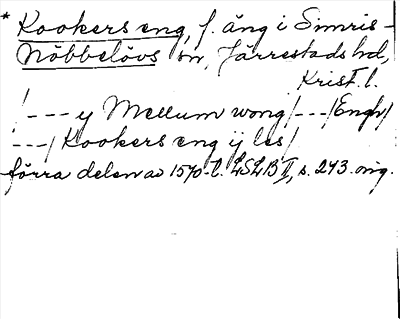 * Kookers eng, f. äng i Simris-
Nöbbelövs sn, Järrestads hd,
Krist. l.
/--- y Mellum wong/---/Engh/
---/ Kookers eng ÿ les/
förra delen av 1570-t. LSLB II, s. 273. orig.